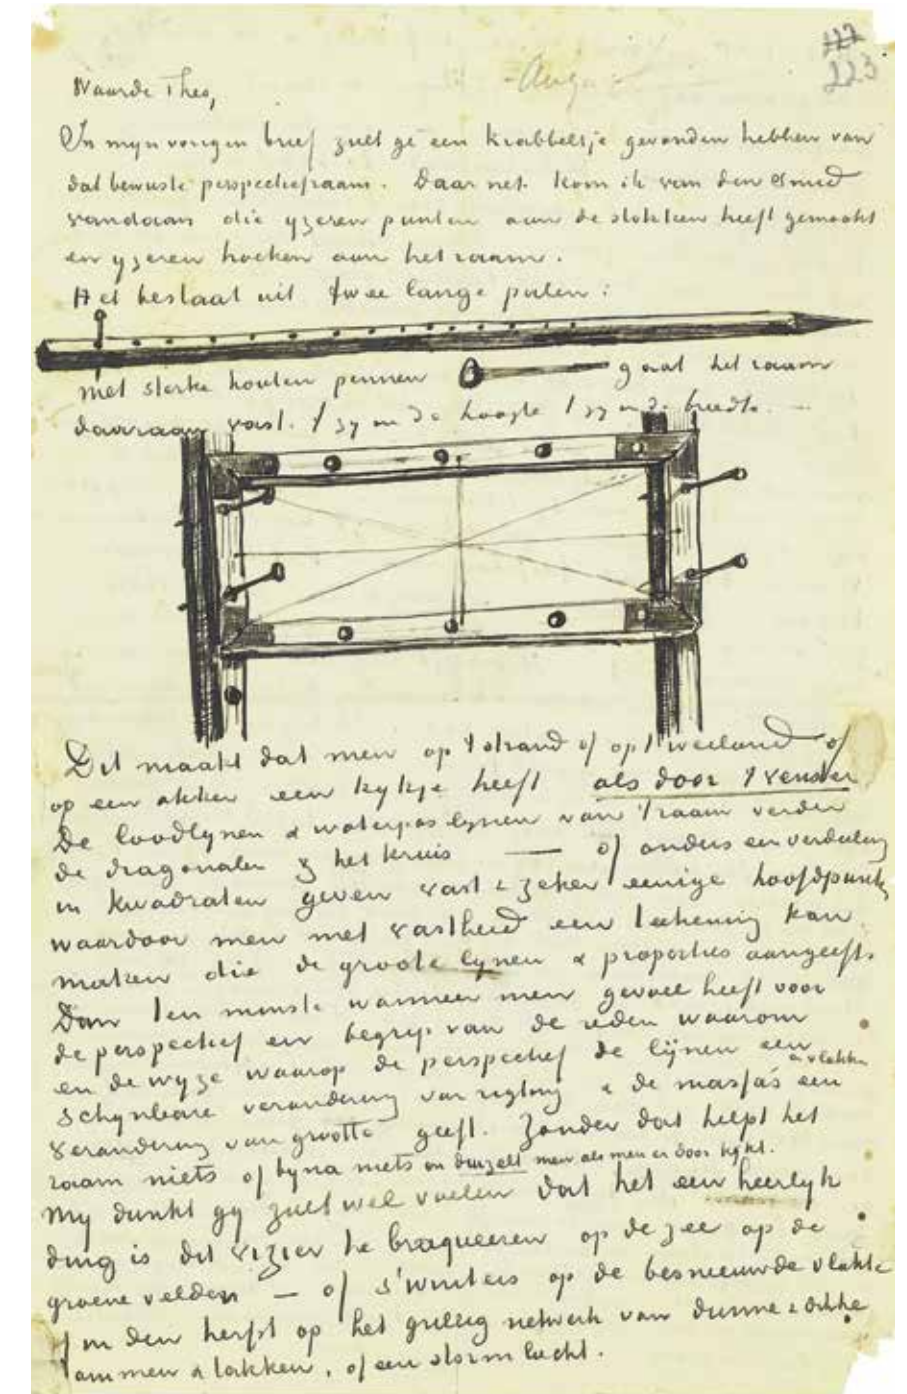 223
Waarde Theo,
In mijn vorigen brief zult ge een krabbeltje gevonden hebben van
dat bewuste perspectiefraam. Daar net kom ik van den smid
vandaan die yzeren punten aan de stokken heeft gemaakt
en yzeren hoeken aan het raam.
Het bestaat uit twee lange palen:
met sterke houten pennen gaat het raam
daaraan vast. 't zy in de hoogte 't zy in de breedte.
Dit maakt dat men op 't strand of op 't weiland of
op een akker een kykje heeft als door 't venster
De loodlynen & waterpaslynen van 't raam verder
de diagonalen & het kruis — of anders een verdeeling
in kwadraten geven vast & zeker eenige hoofdpunten
waardoor men met vastheid een teekening kan
maken die de groote lynen & proporties aangeeft.
Dan ten minste wanneer men gevoel heeft voor
de perspectief en begrip van de reden waarom
en de wyze waarop de perspectief de lijnen een
schynbare verandering van rigting & de massa's & vlakken een
verandering van grootte geeft. Zonder dat helpt het
raam niets of byna niets en duizelt men als men er door kykt.
My dunkt gy zult wel voelen dat het een heerlyk
ding is dit vizier te braqueeren op de zee op de
groene velden — of s'winters op de besneeuwde vlakte
of in den herfst op het grillig netwerk van dunne & dikke
stammen & takken, of een stormlucht.